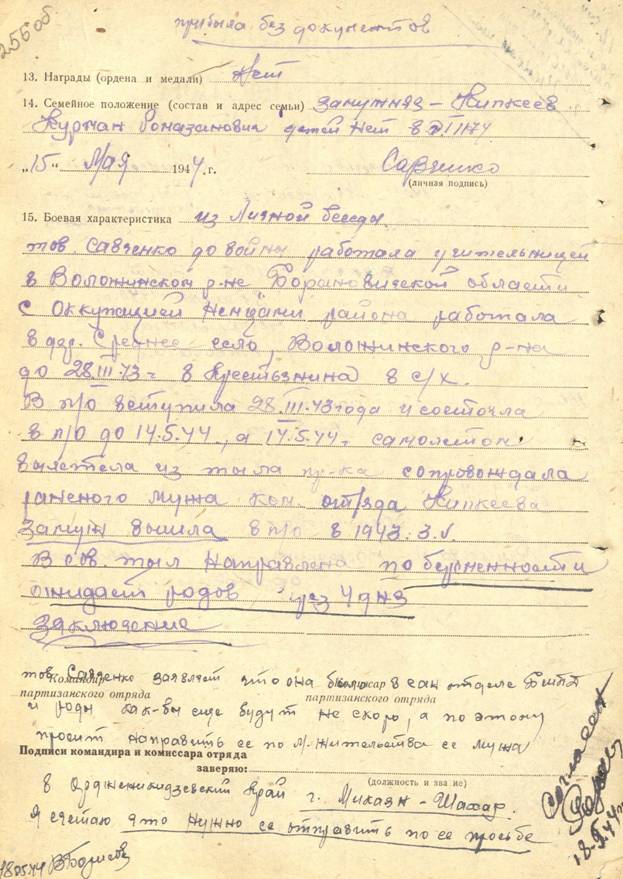 25606
прибыла без документов
13. Награды (ордена и медали) Нет
14. Семейное положение (состав и адрес семьи) замужняя – Кипкеев
детей нет в
„15" Мая 1944 г. Савченко
(личная подпись)
15. Боевая характеристика из Личной беседы
тов. Савченко до войны работала учительницей
в Воложинском р-не Борановичской области
с Оккупацией Немцами района работала
в дер. Среднее село, Воложинского р-на
до 28.III.43 г. в Крестьянина в с/х.
В п/о вступила 28.III.43 года и состояла
в п/о до 14.5.44, а 14.5.44 г. самолетом
вылетела из тыла пр-ка сопровождала
раненого мужа ком. отряда Кипкеева
замуж вышла в п/о в 1943.
В сов. тыл направлена по беременности
ожидает родов через 4 дня
заключение
Командир Комиссар
партизанского отряда партизанского отряда
тов. Савченко заявляет что она была в сан отделе БШПД
и роды как-бы еще будут не скоро, а по этому
просит направить ее по М. жительства ее мужа
Подписи командира и комиссара отряда
заверяю:
(должность и звание)
в Орджоникидзевский край г. Микоян-Шахар.
Я считаю что нужно ее отправить по ее просьбе
18.05.44
Согласен
18.5.44